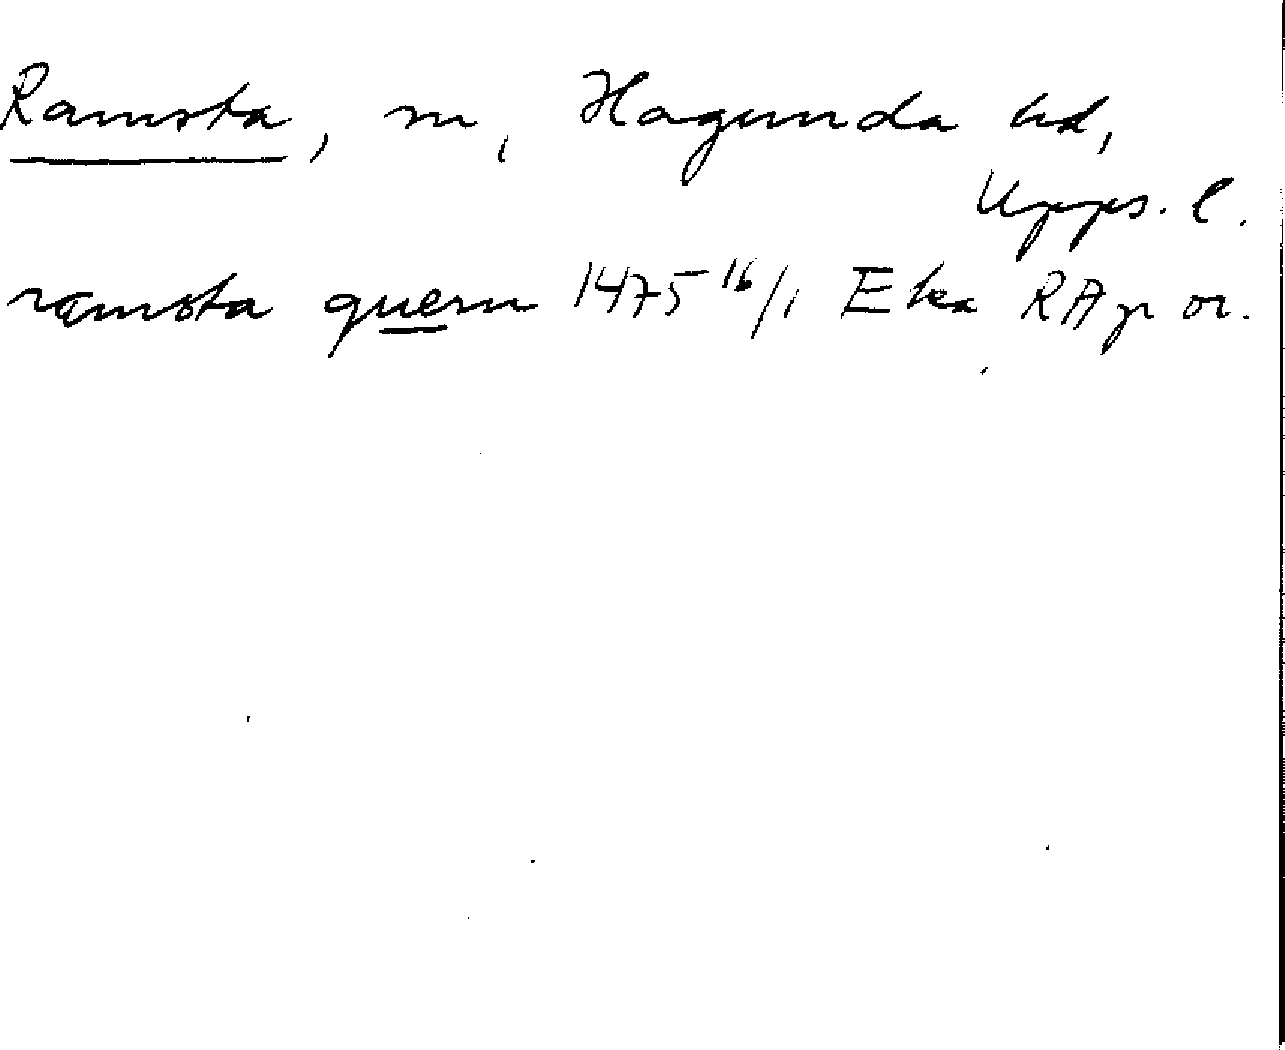 Ramsta, sn, Hagunda hd,
Upps. l.
ramsta quern 1475 16/1 Eka RAp or.